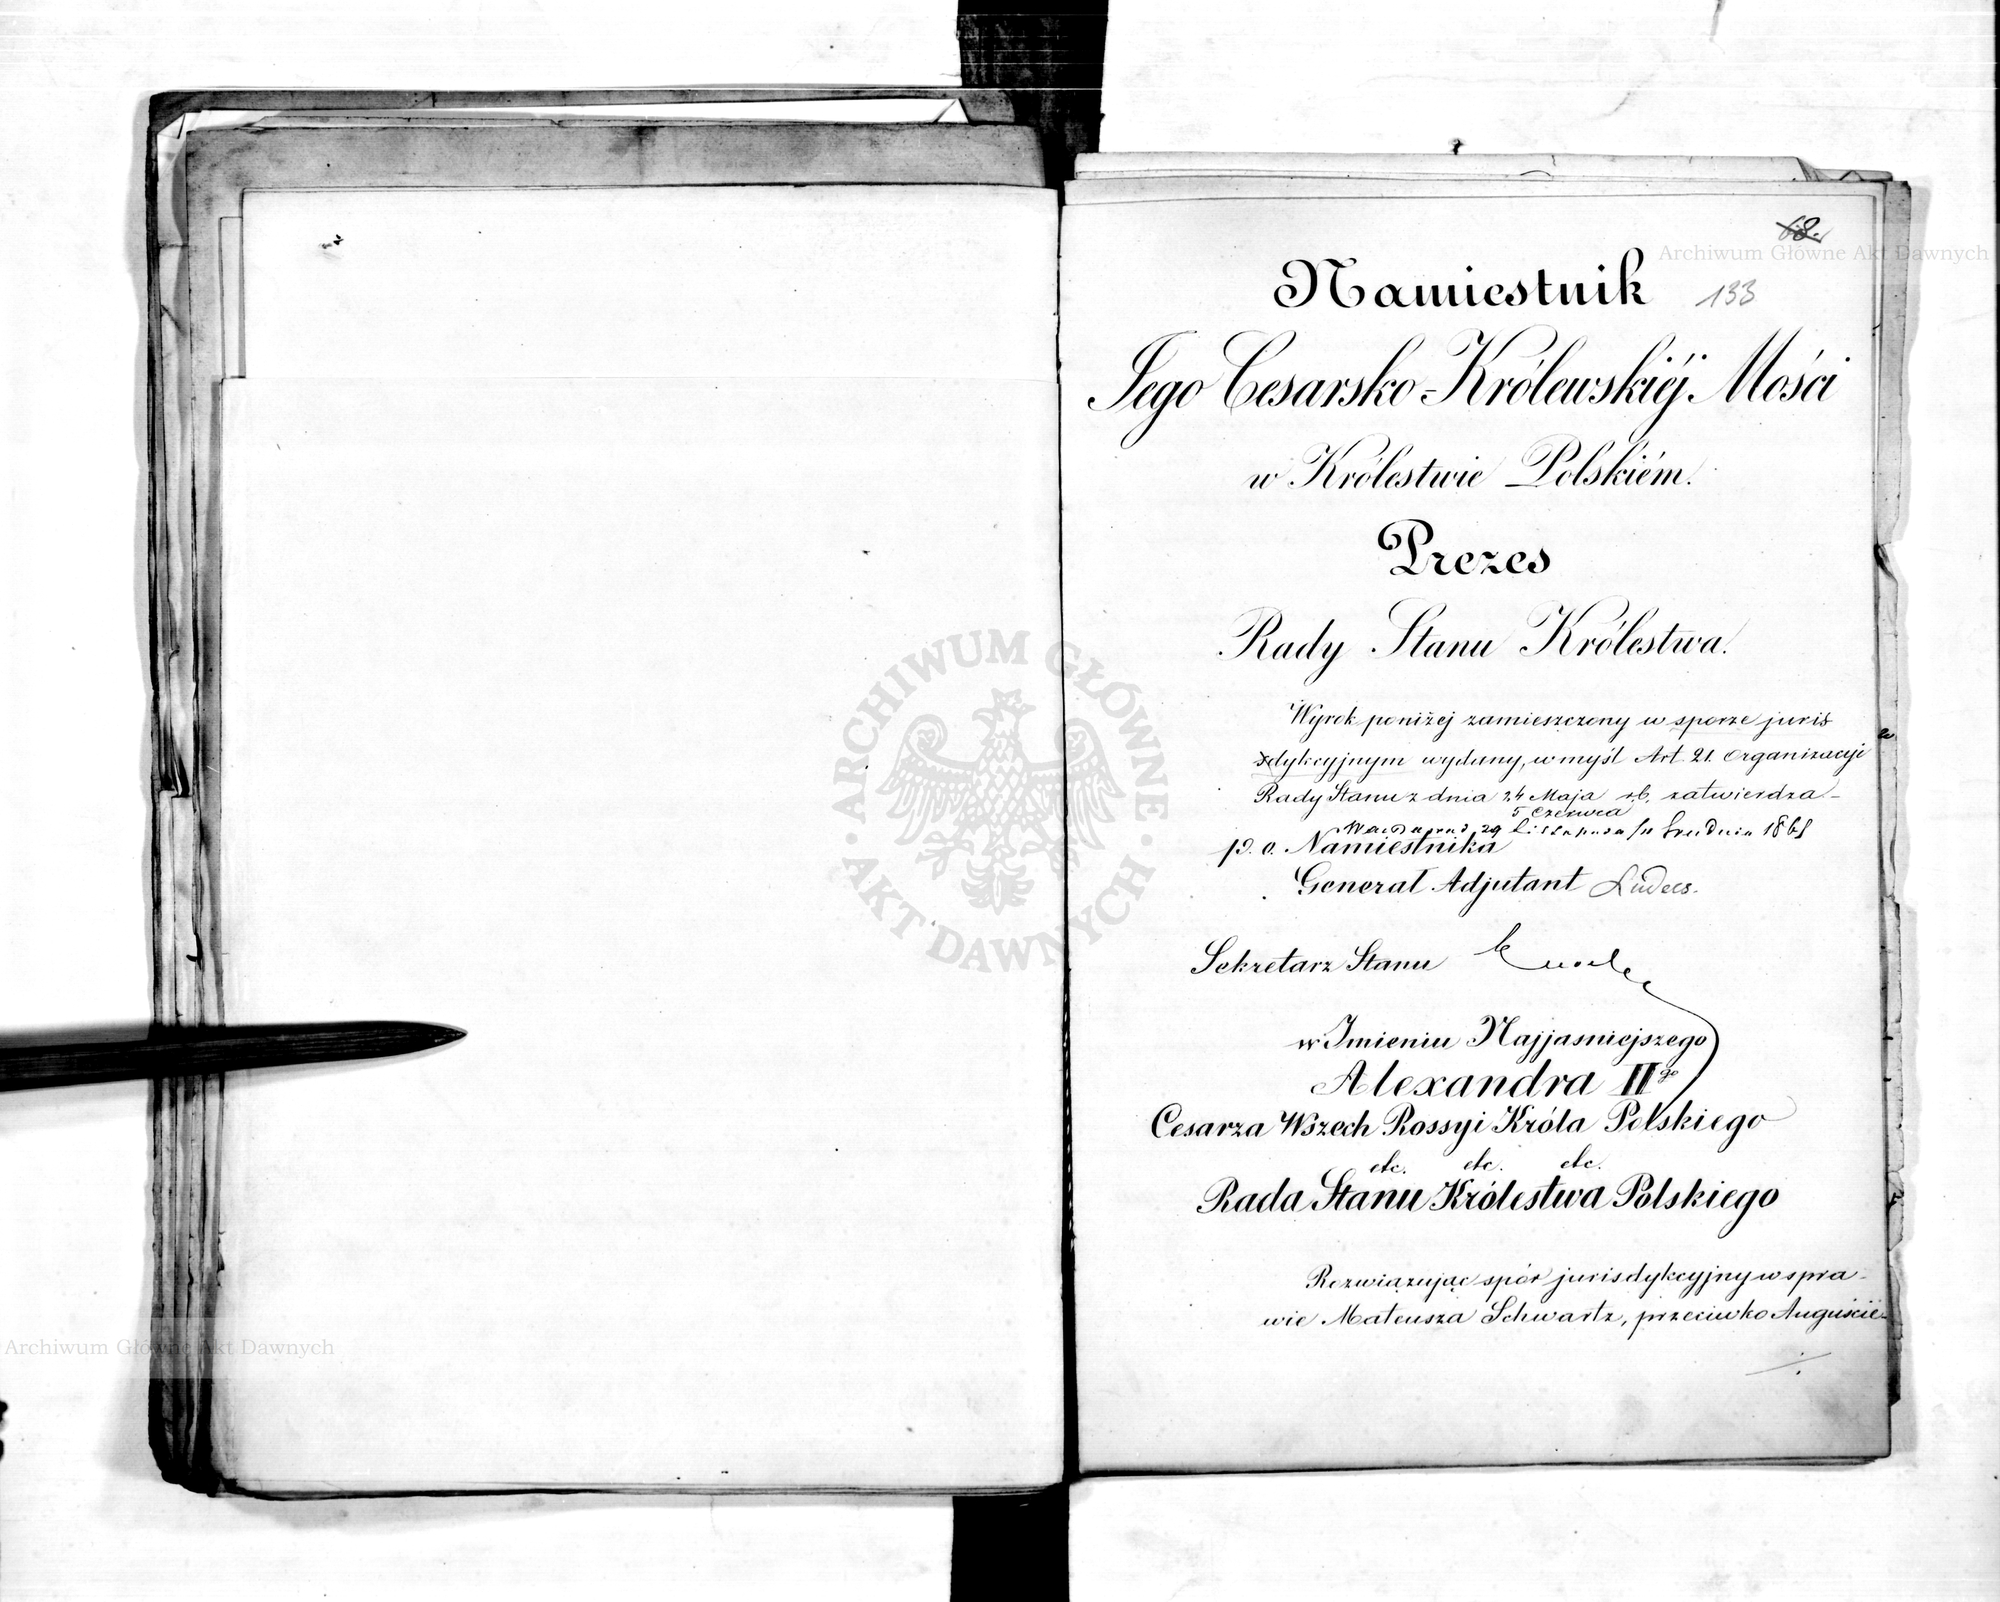 68.
Archiwum Główne Akt Dawnych
Namiestnik 133
Jego Cesarsko-Królewskiéj Mości
w Królestwie Polskiém.
Prezes
Rady Stanu Królestwa.
Wyrok poniżej zamieszczony w sporze juris
dykcyjnym wydany, w myśl Art. 21. Organizacyi
Rady Stanu z dnia 24 Maja r.b. zatwierdza_
5 Czerwca
29 Listopada/11 Grudnia 1861
p. o. Namiestnika
Generał Adjutant Luders.
Sekretarz Stanu
w Imieniu Najjasniejszego
Alexandra IIgo
Cesarza Wszech Rossyi Króla Polskiego
etc. etc. etc.
Rada Stanu Królestwa Polskiego
Rozwiązując spór jurisdykcyjny w spra-
wie Mateusza Schwartz, przeciwko Auguście
ARCHIWUM GŁÓWNE
AKT DAWNYCH
Archiwum Główne Akt Dawnych